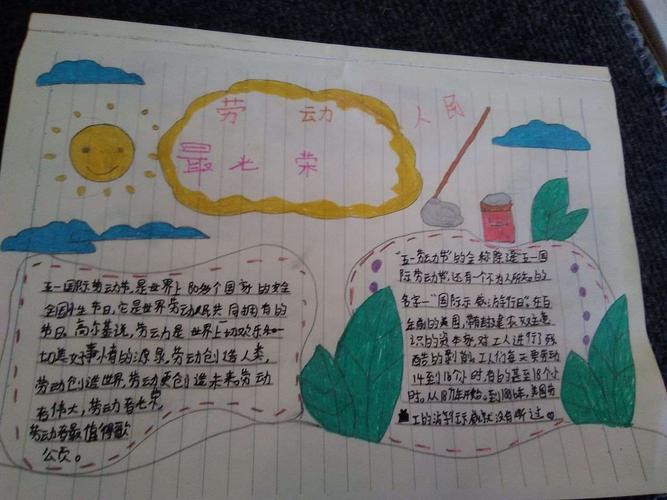 劳动人民
最光荣
五一国际劳动节,是世界上80多个国家的
全国性节日,它是世界劳动人民共同拥有的
节日。高尔基说,劳动力是世界上一切欢乐和一
切美好事情的源泉,劳动创造人类,
劳动创造世界,劳动更创造未来。劳动
最值得歌
公贡。
"五一劳动节"的全称是五一国
际劳动节,还有个不为人所知的
名字一"国际示威游行日"。在百
年前的美国,
识的资本家,对工人进行了残
酷的剥削。工人们每天要劳动
14到16个小时,有的甚至18个小
时。从18 年开始。到 年,美国劳
工的游行示威就没有断过